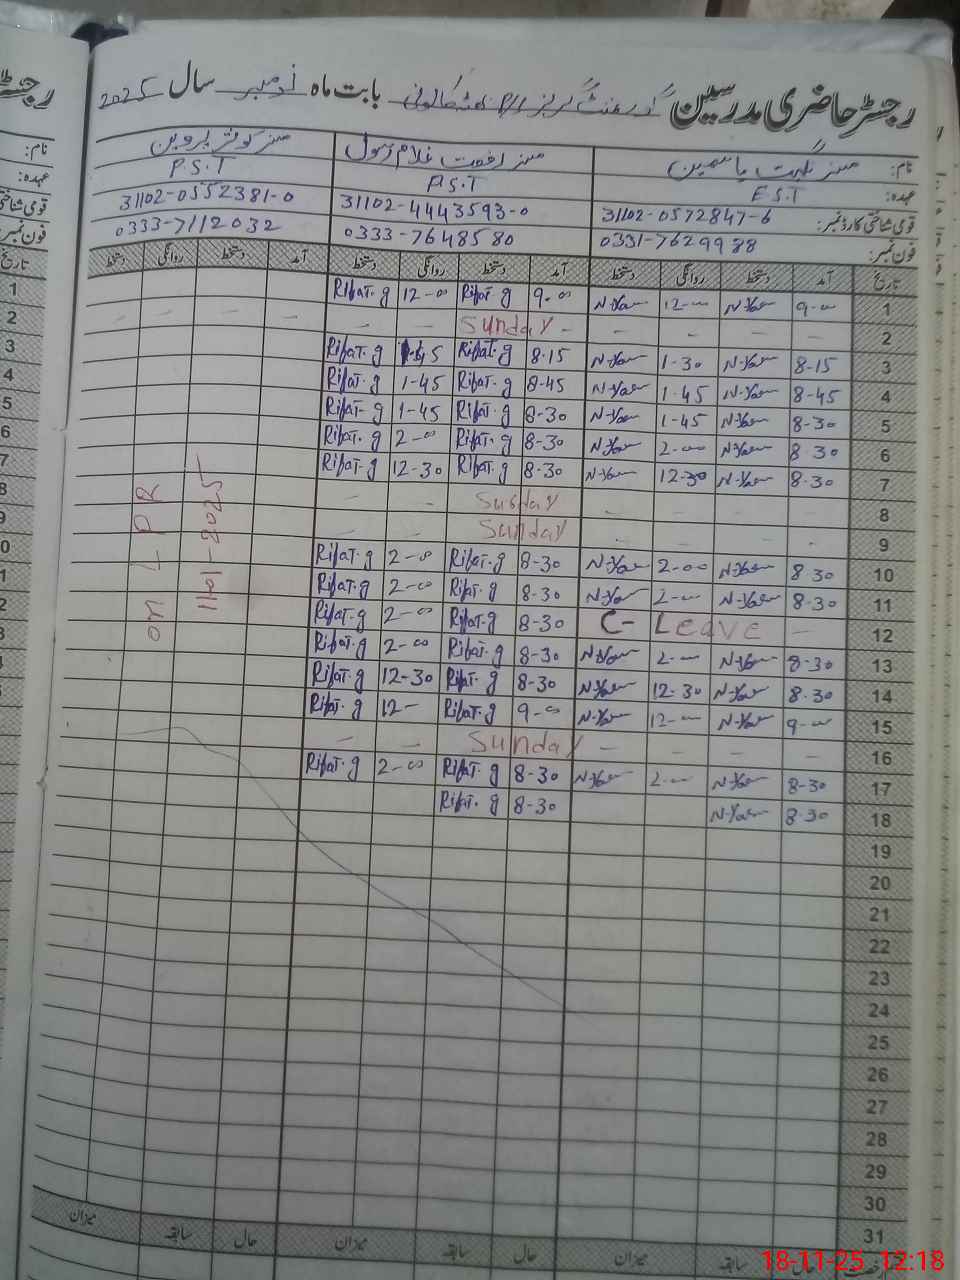 رجسٹر حاضری مدرسین گورنمنٹ گرلز P/S کالونی بابت ماہ نومبر سال 2025
نام: مسز نگہت یاسمین مسز رفعت غلام رسول مسز کوثر پروین
عہدہ: E.S.T P.S.T P.S.T
قومی شناختی کارڈ نمبر: 31102-0572847-6 31102-4443593-0 31102-0552381-0
فون نمبر: 0331-7629988 0333-7648580 0333-7112032
تاریخ آمد دستخط روانگی دستخط آمد دستخط روانگی دستخط آمد دستخط روانگی دستخط
1 9-00 N-Yas 12-00 N-Yas 9-00 Rifat.g 12-00 Rifat.g
2 - - - - Sunday - - - -
3 8-15 N-Yas 1-30 N-Yas 8-15 Rifat.g 1-45 Rifat.g
4 8-45 N-Yas 1-45 N-Yas 8-45 Rifat.g 1-45 Rifat.g
5 8-30 N-Yas 1-45 N-Yas 8-30 Rifat.g 1-45 Rifat.g
6 8-30 N-Yas 2-00 N-Yas 8-30 Rifat.g 2-00 Rifat.g
7 8-30 N-Yas 12-30 N-Yas 8-30 Rifat.g 12-30 Rifat.g
8 - - - - Sunday - -
9 - - - - Sunday - -
10 8-30 N-Yas 2-00 N-Yas 8-30 Rifat.g 2-00 Rifat.g
11 8-30 N-Yas 2-00 N-Yas 8-30 Rifat.g 2-00 Rifat.g
12 C- Leave - 8-30 Rifat.g 2-00 Rifat.g
13 8-30 N-Yas 2-00 N-Yas 8-30 Rifat.g 2-00 Rifat.g
14 8-30 N-Yas 12-30 N-Yas 8-30 Rifat.g 12-30 Rifat.g
15 9-00 N-Yas 12-00 N-Yas 9-00 Rifat.g 12- Rifat.g
16 - - - - Sunday - -
17 8-30 N-Yas 2-00 N-Yas 8-30 Rifat.g 2-00 Rifat.g
18 8-30 N-Yas 8-30 Rifat.g
19
20
21
22
23
24
25
26
27
28
29
30
31
on LPR
11-01-2025
حال سابقہ میزان حال سابقہ میزان حال سابقہ میزان
18-11-25 12:18